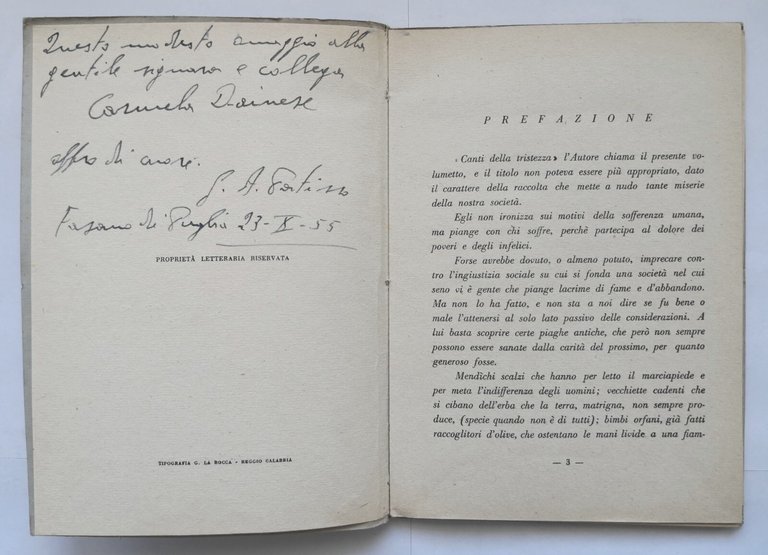 Questo modesto omaggio alla
gentile signora e collega
Carmela Dainese
offro di cuore.
G. A.
Fasano di Puglia 23-X-55
PROPRIETÀ LETTERARIA RISERVATA
TIPOGRAFIA G. LA ROCCA - REGGIO CALABRIA
PREFAZIONE
«Canti della tristezza» l'Autore chiama il presente vo-
lumetto, e il titolo non poteva essere più appropriato, dato
il carattere della raccolta che mette a nudo tante miserie
della nostra società.
Egli non ironizza sui motivi della sofferenza umana,
ma piange con chi soffre, perchè partecipa al dolore dei
poveri e degli infelici.
Forse avrebbe dovuto, o almeno potuto, imprecare con-
tro l'ingiustizia sociale su cui si fonda una società nel cui
seno vi è gente che piange lacrime di fame e d'abbandono.
Ma non lo ha fatto, e non sta a noi dire se fu bene o
male l'attenersi al solo lato passivo delle considerazioni. A
lui basta scoprire certe piaghe antiche, che però non sempre
possono essere sanate dalla carità del prossimo, per quanto
generoso fosse.
Mendìchi scalzi che hanno per letto il marciapiede e
per meta l'indifferenza degli uomini; vecchiette cadenti che
si cibano dell'erba che la terra, matrigna, non sempre pro-
duce, (specie quando non è di tutti); bimbi orfani, già fatti
raccoglitori d'olive, che ostentano le mani livide a una fiam-
— 3 —